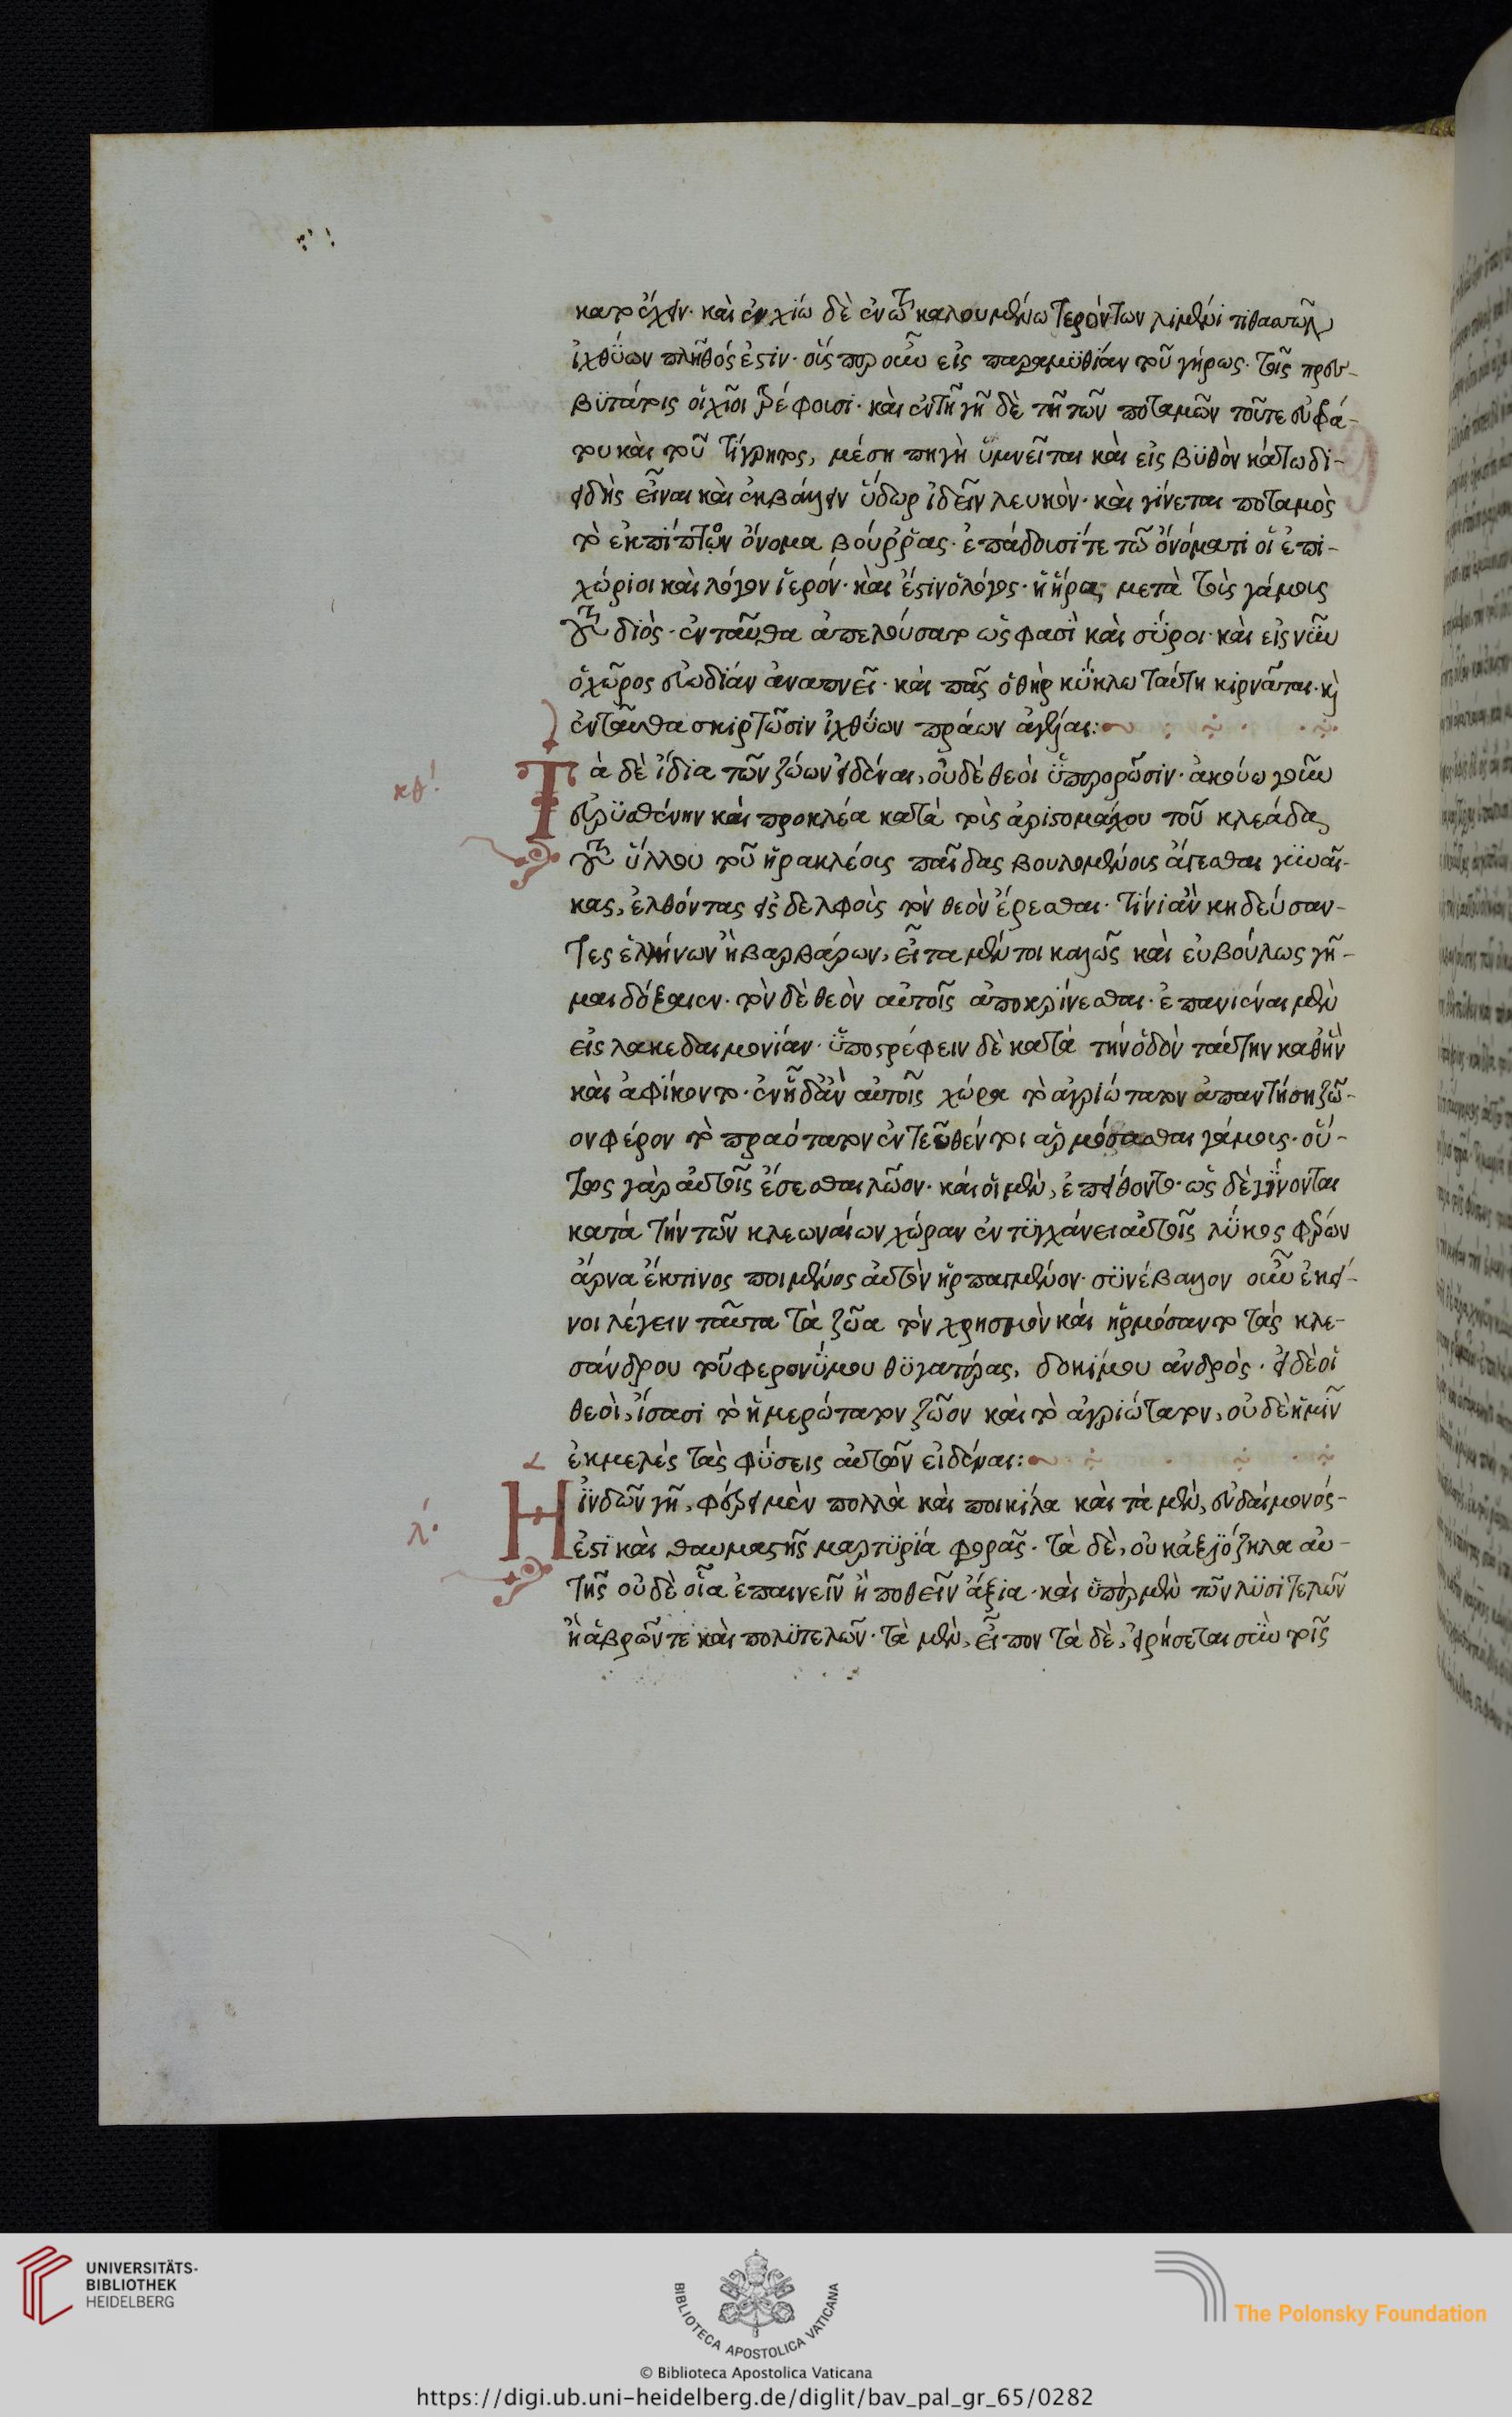 κατοέχειν· καὶ ἐν χίω δὲ ἐν τῶ καλουμένω γερόντων λιμένι τιθασσῶν
ἰχθύων πλῆθός ἐστιν· οἵσπερ οὖν εἰς παραμυθίαν τοῦ γήρως· τοῖς πρεσ-
βυτάτοις οἱ χῖοι τρέφουσι· καὶ ἐν τῆ γῆ δὲ τῆ τῶν ποταμῶν τοῦτε εὐφρά-
του καὶ τοῦ τίγρητος, μέση πηγὴ ὑμνεῖται καὶ εἰς βυθὸν κάτω δι-
ειδὴς εἶναι καὶ ἐκβάλλειν ὕδωρ ἰδεῖν λευκὸν· καὶ γίνεται ποταμὸς
τὸ ἐκπίπτον ὄνομα βούρρας· ἐπάδουσί τε τῶ ὀνόματι οἱ ἐπι-
χώριοι καὶ λόγον ἱερόν· καὶ ἔστιν ὁ λόγος· ἡ ἥρα μετὰ τοὺς γάμους
τοὺς διὸς· ἐνταῦθα ἀπελούσατο ὥς φασι καὶ σύροι· καὶ εἰς νῦν
ὁ χῶρος εὐωδίαν ἀναπνεῖ· καὶ πᾶς ὁ ἀὴρ κύκλω ταύτη κιρνᾶται· κὶ
ἐνταῦθα σκιρτῶσιν ἰχθύων πράων ἀγέλαι:
κθ΄
Τὰ δὲ ἴδια τῶν ζώων εἰδέναι, οὐδὲ θεοὶ ὑπερορῶσιν· ἀκούω γοῦν
εὐρυσθένην καὶ προκλέα κατὰ τοὺς ἀριστομάχου τοῦ κλεάδα
τοῦ ὕλλου τοῦ ἡρακλέους παῖδας βουλομένους ἄγεσθαι γυναῖ-
κας, ἐλθόντας εἰς δελφοὺς τὸν θεὸν ἔρεσθαι· τίνι ἂν κηδεύσαν-
τες ἑλλήνων ἢ βαρβάρων, εἶτα μέντοι καλῶς καὶ εὐβούλως γῆ-
μαι δόξαιεν· τὸν δὲ θεὸν αὐτοῖς ἀποκρίνεσθαι· ἐπανιέναι μὲν
εἰς λακεδαιμονίαν· ὑποστρέφειν δὲ κατὰ τὴν ὁδὸν ταύτην καθ' ἣν
καὶ ἀφίκοντο· ἐν ἧ δ' ἂν αὐτοῖς χώρα τὸ ἀγριώτατον ἀπαντήση ζῶ-
ον φέρον τὸ πραότατον ἐντεῦθέν τοι ἁρμόσασθαι γάμους· οὕ-
τως γὰρ αὐτοῖς ἔσεσθαι λῶον· καὶ οἱ μὲν, ἐπείθοντο· ὡς δὲ γίνονται
κατὰ τὴν τῶν κλεωναίων χώραν ἐντυγχάνει αὐτοῖς λύκος φέρων
ἄρνα ἔκ τινος ποιμένος αὐτὸν ἡρπασμένον· συνέβαλον οὖν ἐκεῖ-
νοι λέγειν ταῦτα τὰ ζῶα τὸν χρησμὸν καὶ ἡρμόσαντο τὰς κλε-
σάνδρου τοῦ φερονύμου θυγατέρας, δοκίμου ἀνδρὸς· εἰ δὲ οἱ
θεοὶ, ἴσασι τὸ ἡμερώτατον ζῶον καὶ τὸ ἀγριώτατον, οὐδὲ ἡμῖν
ἐκμελὲς τὰς φύσεις αὐτῶν εἰδέναι:
λ΄
Ἡ ἰνδῶν γῆ, φέρει μὲν πολλὰ καὶ ποικίλα καὶ τὰ μὲν, εὐδαίμονός
ἐστι καὶ θαυμαστῆς μαρτυρία φορᾶς· τὰ δὲ, οὐκ ἀξιόζηλα αὐ-
τῆς οὐδὲ οἷα ἐπαινεῖν ἢ ποθεῖν ἄξια· καὶ ὑπὲρ μὲν τῶν λυσιτελῶν
ἢ ἁβρῶν τε καὶ πολυτελῶν· τὰ μὲν, εἶπον τὰ δὲ, εἰρήσεται σὺν τοῖς
UNIVERSITÄTS-
BIBLIOTHEK
HEIDELBERG
BIBLIOTECA APOSTOLICA VATICANA
© Biblioteca Apostolica Vaticana
The Polonsky Foundation
https://digi.ub.uni-heidelberg.de/diglit/bav_pal_gr_65/0282